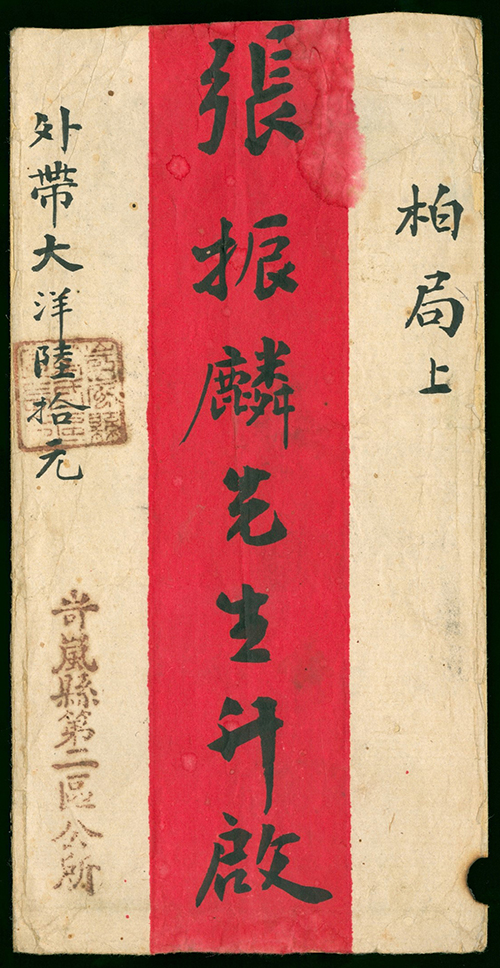 柏局上
張振麟先生升啟
外帶大洋陸拾元
岢嵐縣第二區公所